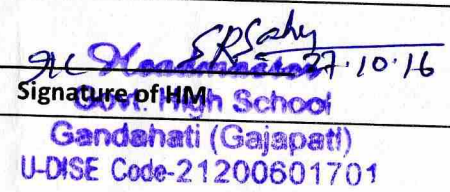 SRSahu
27.10.16
Headmaster
Signature of HM
Govt. High School
Gandahati (Gajapati)
U-DISE Code-21200601701